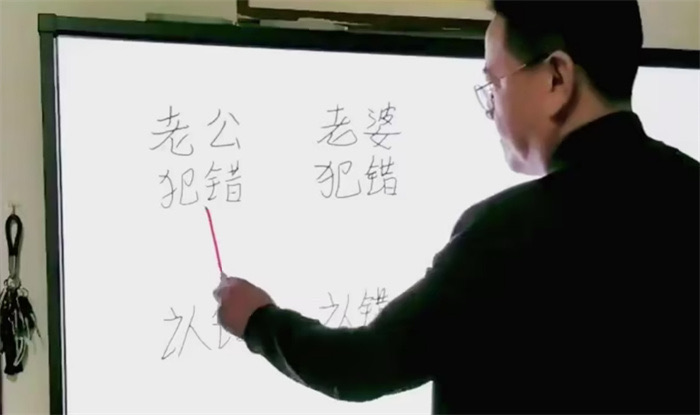 老公 老婆
犯错 犯错
认 认错